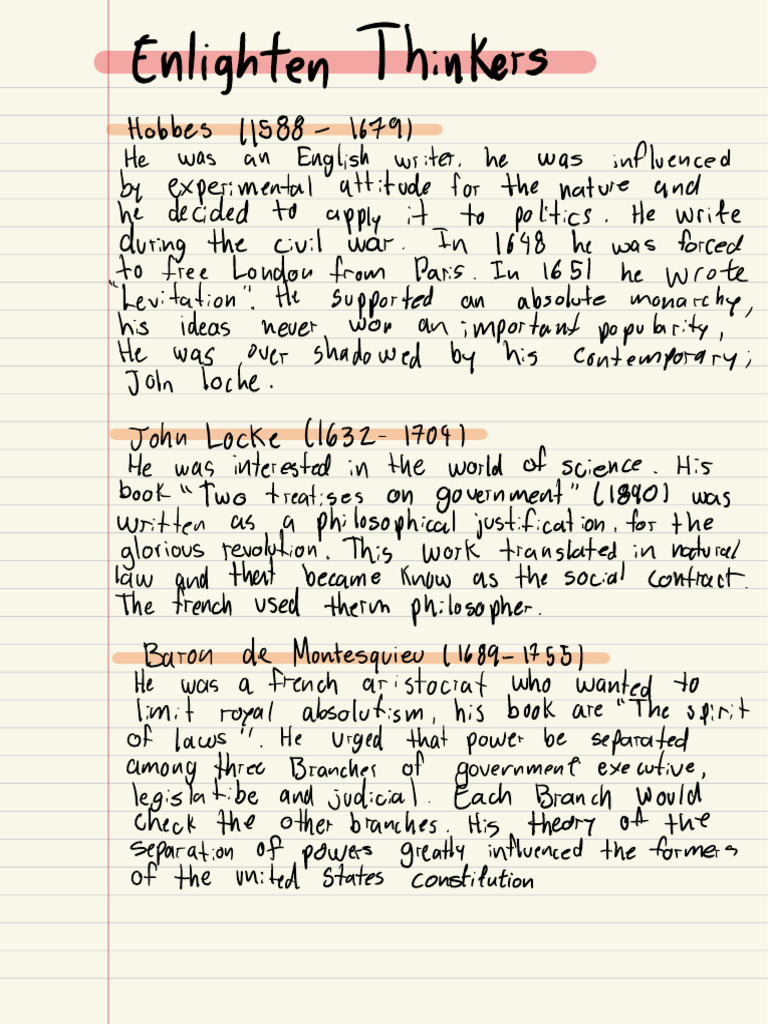 Enlighten Thinkers
Hobbes (1588 - 1679)
He was an English writer. he was influenced
by experimental attitude for the nature and
he decided to apply it to politics. He write
during the civil war. In 1648 he was forced
to free London from Paris. In 1651 he wrote
"Levitation". He supported an absolute monarchy,
his ideas never won an important popularity,
He was over shadowed by his contemporary;
John loche.
John Locke (1632 - 1704)
He was interested in the world of science. His
book "Two treatises on government" (1890) was
written as a philosophical justification, for the
glorious revolution. This work translated in natural
law and thert became know as the social contract.
The french used therm philosopher.
Baron de Montesquieu (1689 - 1755)
He was a french aristocrat who wanted to
limit royal absolutism, his book are "The spirit
of laws". He urged that power be separated
among three Branches of government executive,
legislatibe and judicial. Each Branch would
check the other branches. His theory of the
separation of powers greatly influenced the formers
of the united States constitution